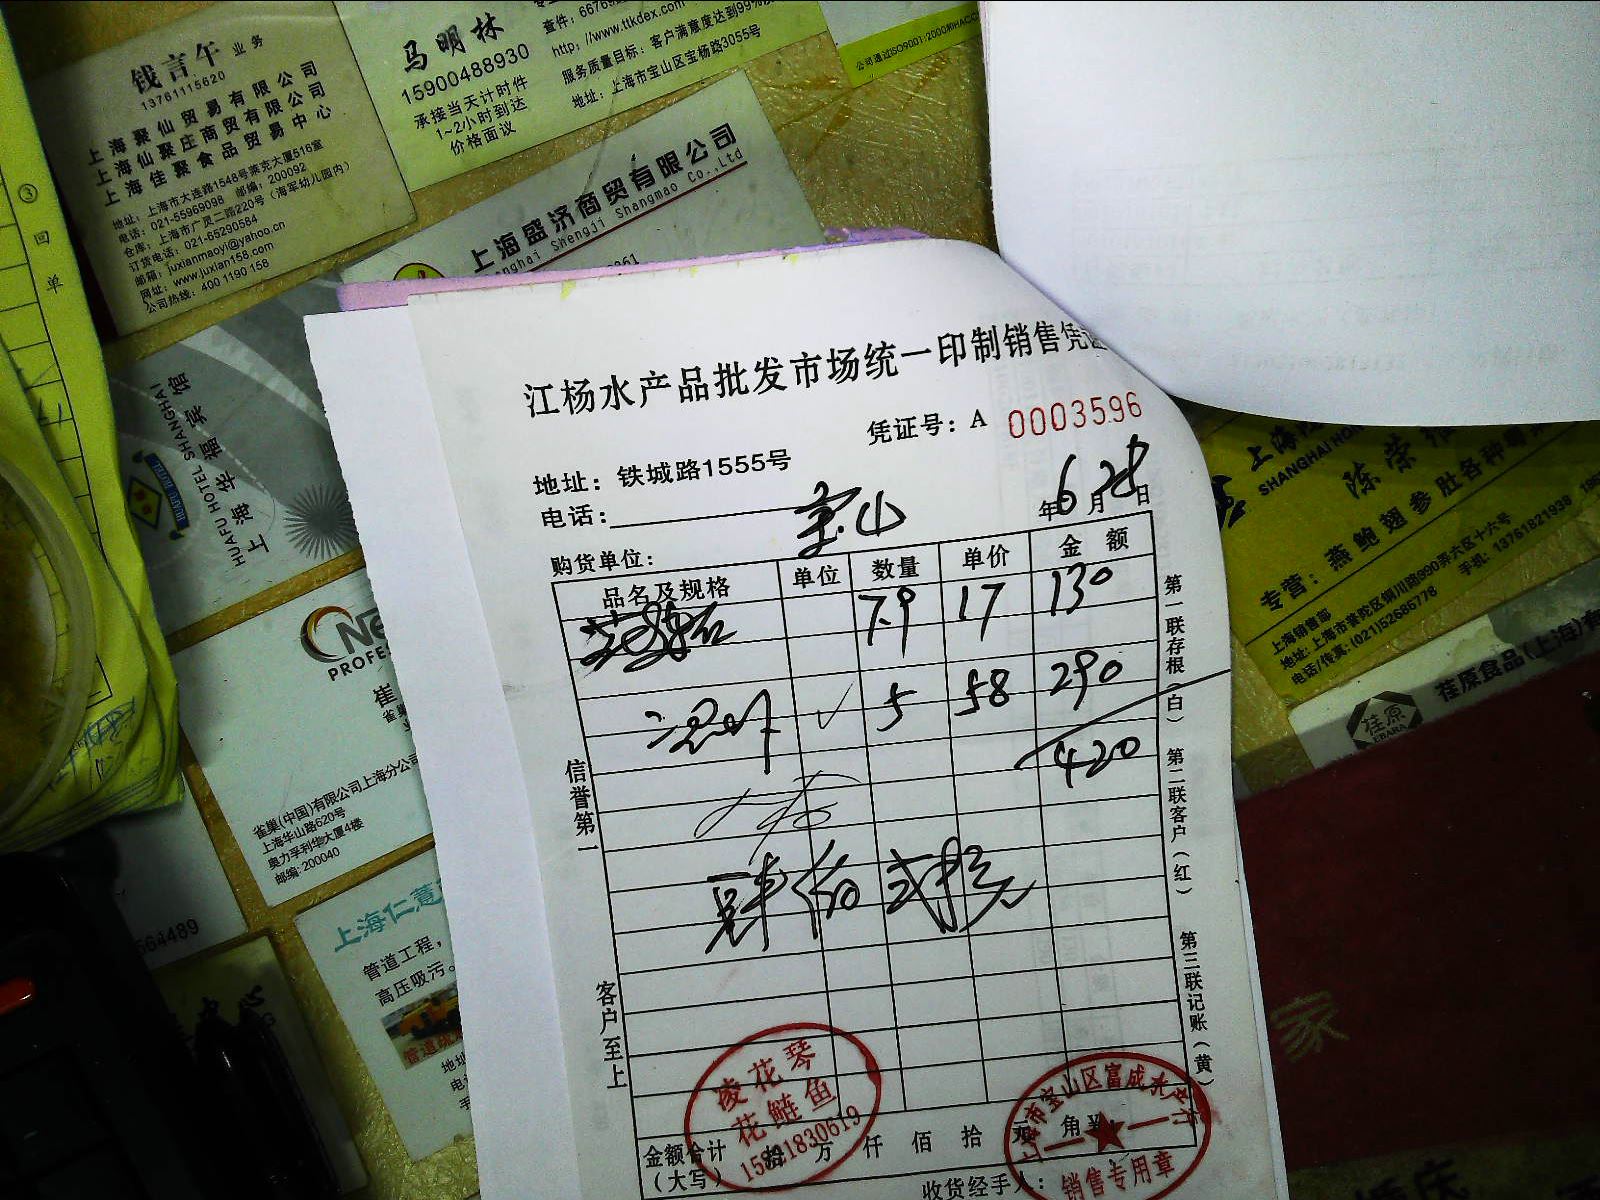 钱言午 业务
13761115620
上海聚仙贸易有限公司
上海仙聚庄商贸有限公司
上海佳聚食品贸易中心
地址：上海市大连路1548号莱克大厦516室
电话：021-55969098 邮编：200092
仓库：上海市广灵二路220号（海军幼儿园内）
订货电话：021-65290584
邮箱：juxianmaoyi@yahoo.cn
网址：www.juxian158.com
公司热线：400 1190 158
马明林
15900488930
承接当天计时件
1~2小时到达
价格面议
http://www.ttkdex.com
服务质量目标：客户满意度达到99%
地址：上海市宝山区宝杨路3055号
公司通过ISO9001:2000和HACC
上海盛济商贸有限公司
Shanghai Shengji Shangmao Co.,Ltd
③回单
上海华福宾馆
HUAFU HOTEL SHANGHAI
PROFES
崔
雀巢(中国)有限公司上海分公司
上海华山路620号
奥力孚利华大厦4楼
邮编：200040
564489
上海仁薏
管道工程，
高压吸污。
江杨水产品批发市场统一印制销售凭证
凭证号：A 0003596
地址：铁城路1555号
电话：
宝山
年 6 月 28 日
购货单位：
品名及规格 单位 数量 单价 金额
7.9 17 130
5 58 290
420
肆佰贰拾元
信誉第一
客户至上
第一联存根（白）
第二联客户（红）
第三联记账（黄）
凌花琴
花鲢鱼
15821830619
上海市宝山区富成水产行
销售专用章
金额合计（大写） 拾 万 仟 佰 拾 元 角
收货经手人：
SHANGHAI HON
陈荣
专营：燕鲍翅参肚各种
上海销售部
地址：上海市普陀区铜川路990弄六区十六号
电话/传真：(021)52685778 手机：13761821939
荏原
EBARA
荏原食品(上海)有
家